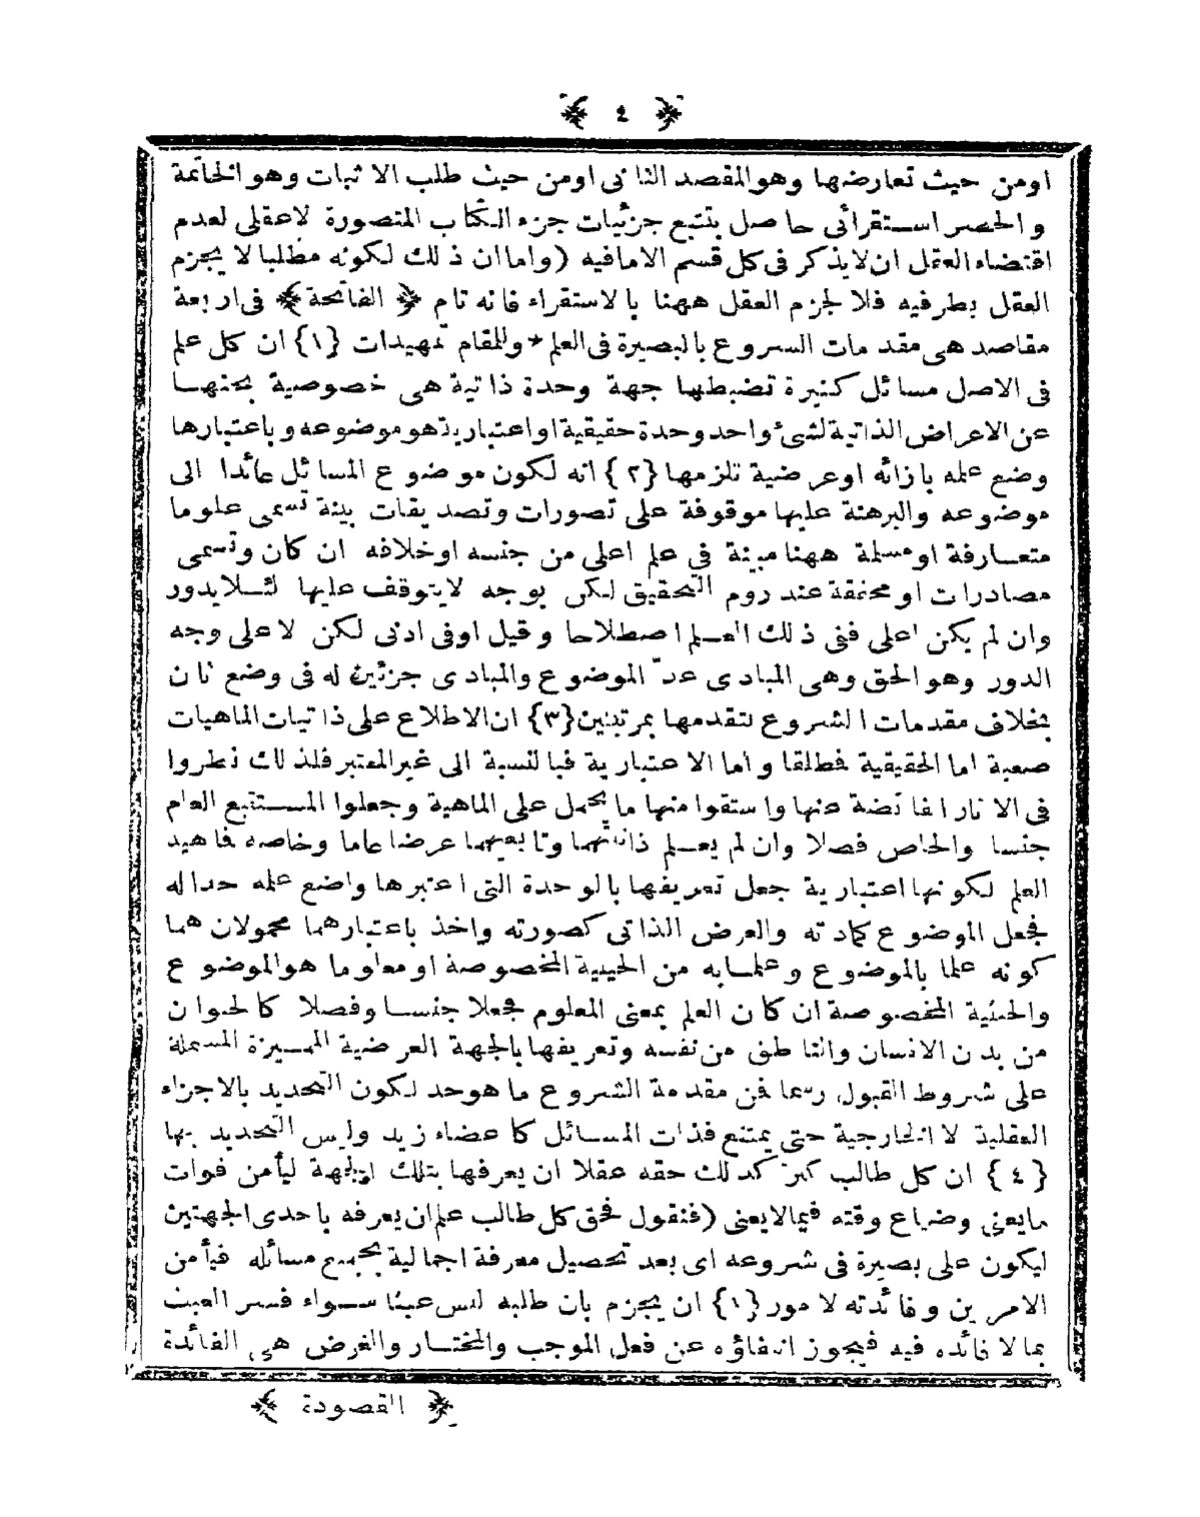 ﴿ ٤ ﴾
اومن حيث تعارضها وهو المقصد الثانى اومن حيث طلب الاثبات وهو الخاتمة
والحصر استقرائى حاصل بتتبع جزئيات جزء الكتاب المتصورة لاعقلى لعدم
اقتضاء العقل ان لايذكر فى كل قسم الا مافيه (واما ان ذلك لكونه مطلبا لا يجزم
العقل بطرفيه فلا لجزم العقل ههنا بالاستقراء فانه تام ﴿ الفاتحة ﴾ فى اربعة
مقاصد هى مقدمات الشروع بالبصيرة فى العلم * وللمقام تمهيدات {١} ان كل علم
فى الاصل مسائل كثيرة تضبطها جهة وحدة ذاتية هى خصوصية بحثها
عن الاعراض الذاتية لشئ واحد وحدة حقيقية او اعتبارية هو موضوعه وباعتبارها
وضع علمه بازائه اوعرضية تلزمها {٢} انه لكون موضوع المسائل عائدا الى
موضوعه والبرهنة عليها موقوفة على تصورات وتصديقات بينة تسمى علوما
متعارفة او مسلمة ههنا مبينة فى علم اعلى من جنسه اوخلافه ان كان وتسمى
مصادرات او محققة عند روم التحقيق لكن بوجه لايتوقف عليها لئلايدور
وان لم يكن اعلى ففى ذلك العلم اصطلاحا وقيل اوفى ادنى لكن لا على وجه
الدور وهو الحق وهى المبادى عدّ الموضوع والمبادى جزئين له فى وضع ثان
بخلاف مقدمات الشروع لتقدمها بمرتبتين {٣} ان الاطلاع على ذاتيات الماهيات
صعبة اما الحقيقية فمطلقا واما الاعتبارية فبالنسبة الى غير المعتبر فلذلك نظروا
فى الاثار الفائضة عنها واستقوا منها ما يحمل على الماهية وجعلوا المستتبع العام
جنسا والخاص فصلا وان لم يعلم ذاتيتهما وتابعيهما عرضا عاما وخاصه فماهية
العلم لكونها اعتبارية جعل تعريفها بالوحدة التى اعتبرها واضع علمه حدا له
فجعل الموضوع كمادته والعرض الذاتى كصورته واخذ باعتبارهما محمولان هما
كونه علما بالموضوع وعلما به من الحيثية المخصوصة او معلوما هو الموضوع
والحيثية المخصوصة ان كان العلم بمعنى المعلوم فجعلا جنسا وفصلا كالحيوان
من بدن الانسان والناطق من نفسه وتعريفها بالجهة العرضية المميزة المشتملة
على شروط القبول رسما فمن مقدمة الشروع ما هو حد لكون التحديد بالاجزاء
العقلية لا الخارجية حتى يمتنع فذات المسائل كاعضاء زيد وليس التحديد بها
{٤} ان كل طالب كثرة كذلك حقه عقلا ان يعرفها بتلك الجهة ليأمن فوات
مايعنى وضياع وقته فيمالايعنى (فنقول فحق كل طالب علم ان يعرفه باحدى الجهتين
ليكون على بصيرة فى شروعه اى بعد تحصيل معرفة اجمالية بجميع مسائله فيأمن
الامرين وفائدته لامور {١} ان يجزم بان طلبه ليس عبثا سواء فسر العبث
بمالا فائده فيه فيجوز انتفاؤه عن فعل الموجب والمختار والغرض هى الفائدة
﴿ المقصودة ﴾